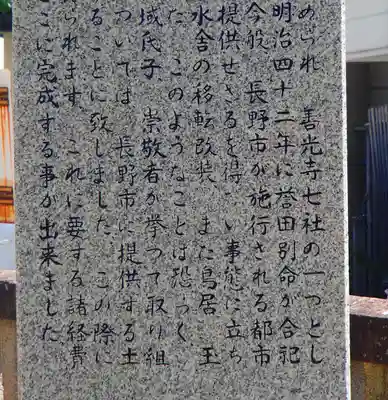 められ 善光寺七社の一つとし
明治四十二年に誉田別命が合祀
今般 長野市が施行される都市
提供せざるを得 い事態に立ち
水舎の移転改装 また鳥居 玉
た このようなことは恐らく
域氏子 崇敬者が挙つて取り組
ついては 長野市に提供する土
ることに致しました この際に
られます これに要する諸経費
ここに完成する事が出来ました